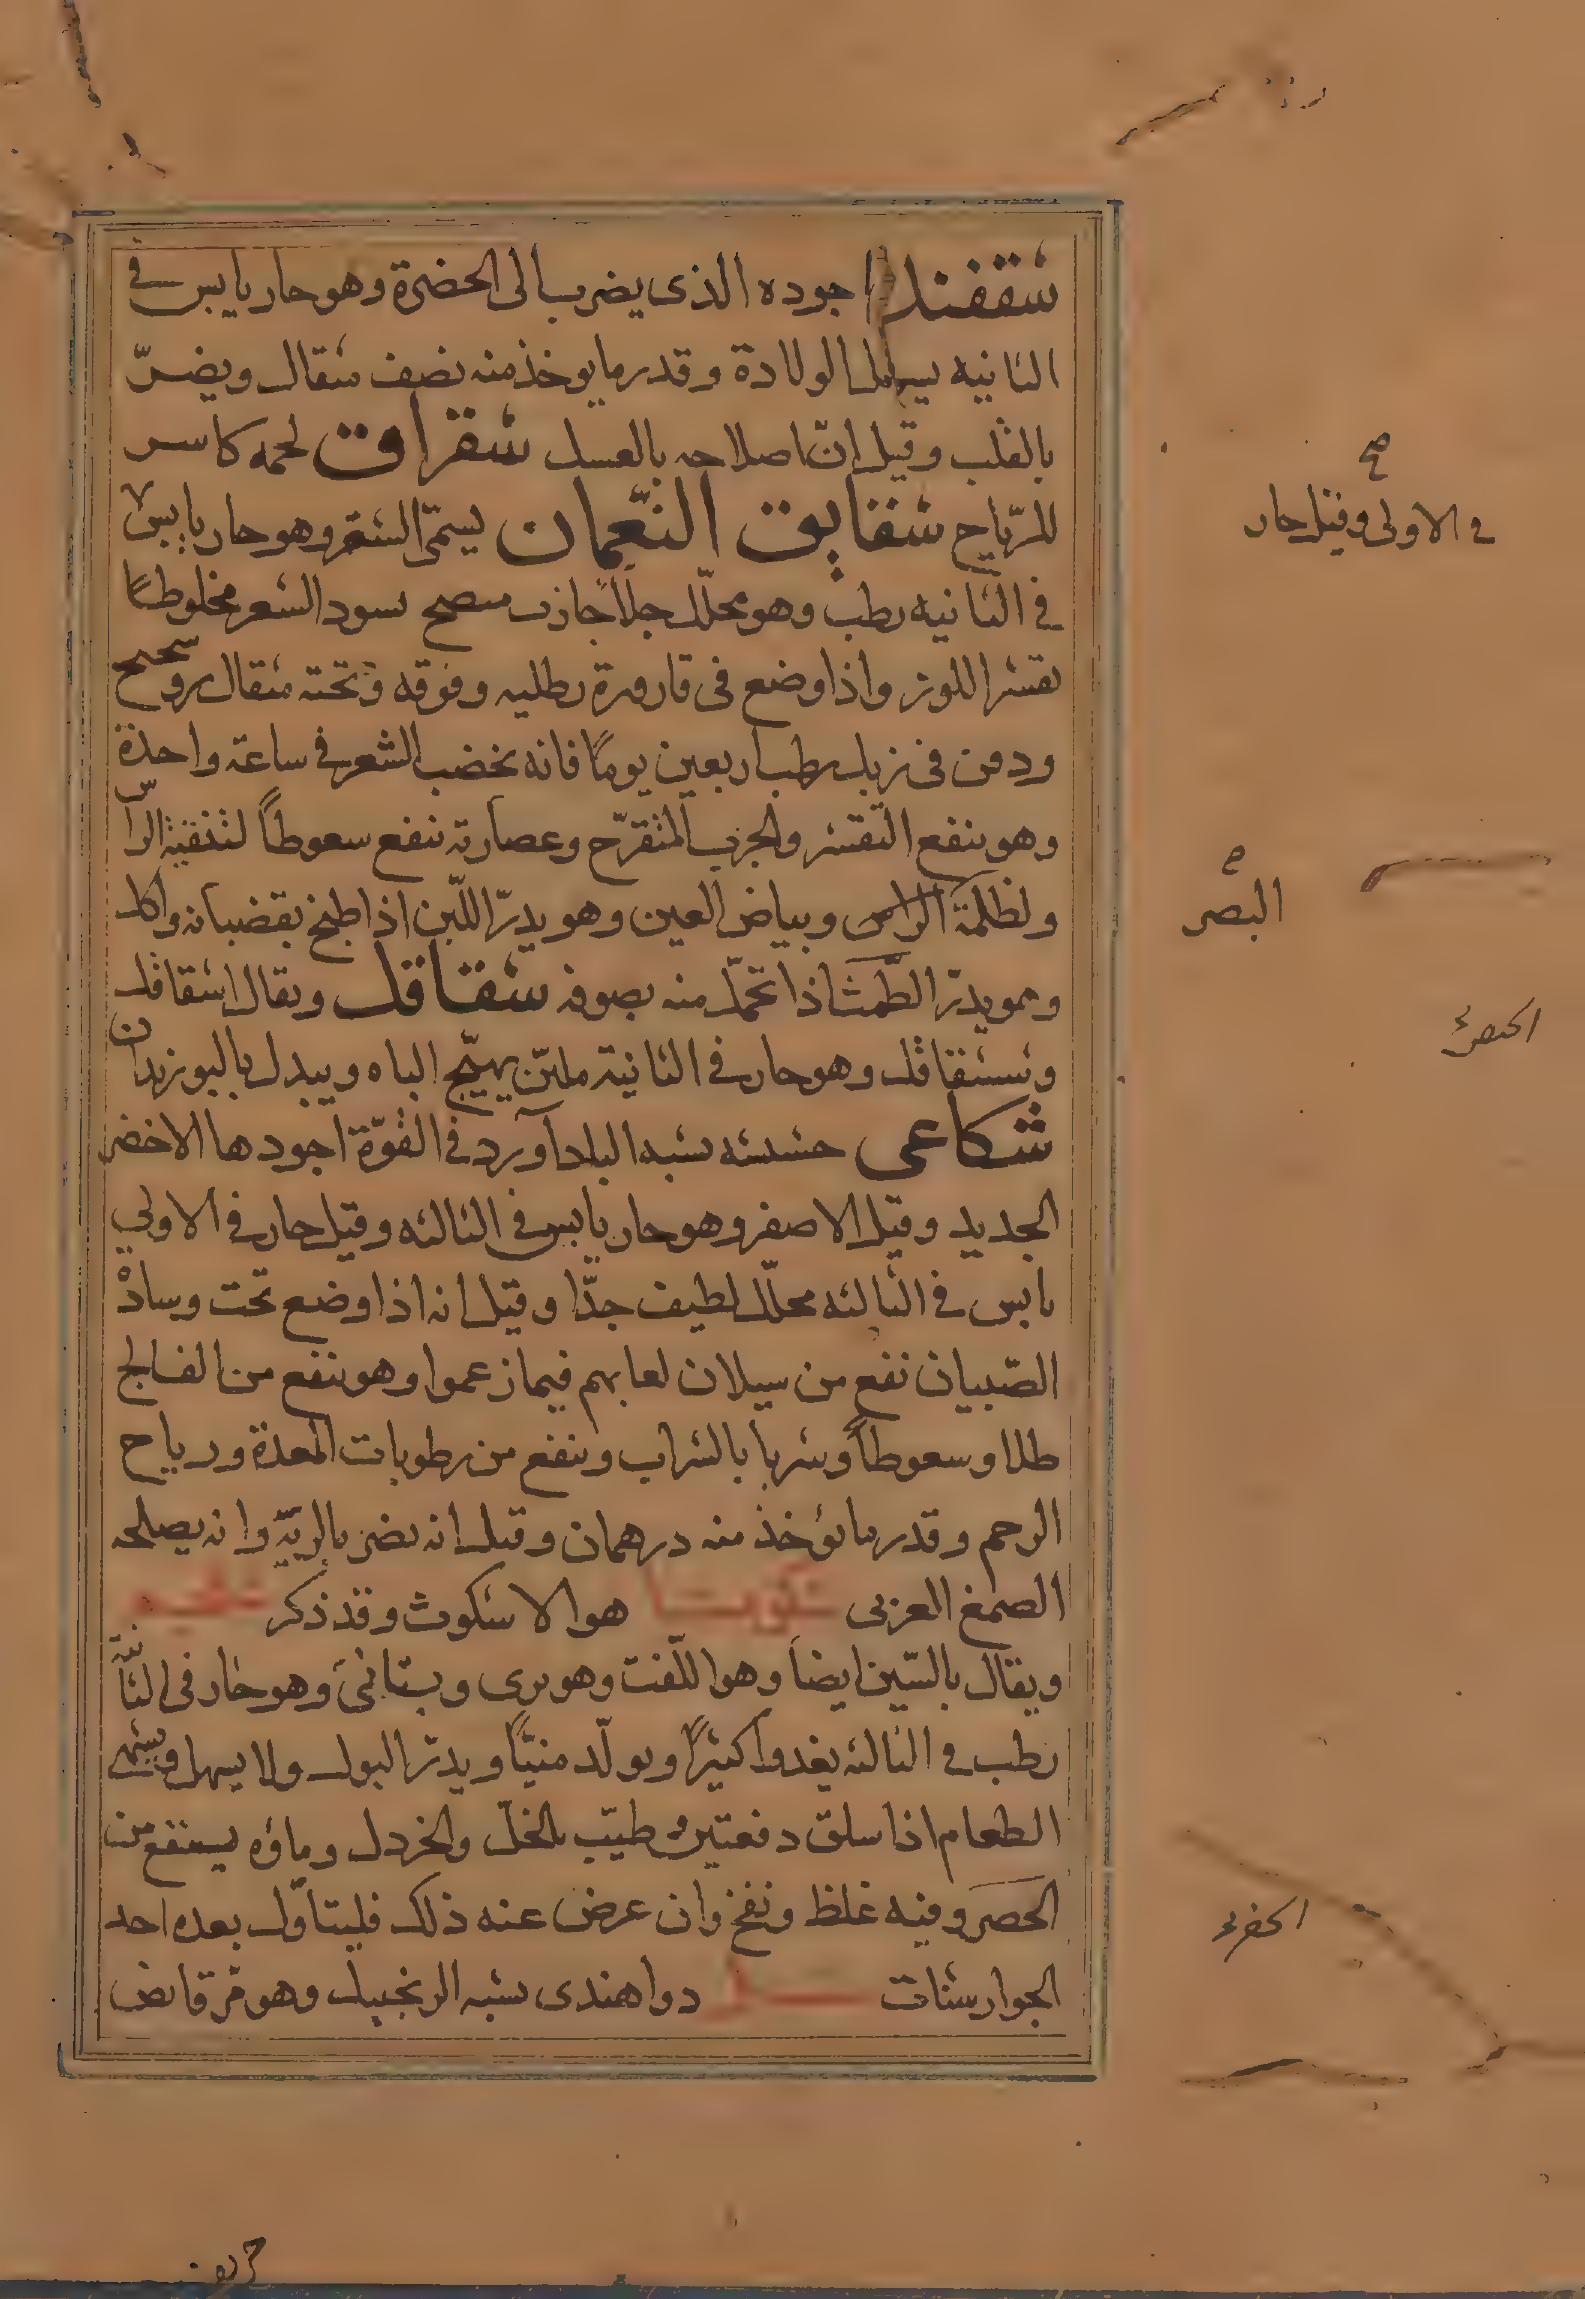 شقفندا اجوده الذى يضرب الى الحضرة وهو حار يابس فى
الثانيه يسهل الولادة وقدر ما يوخذ منه نصف مثقال ويضرّ
بالقلب وقيل انّ اصلاحه بالعسل شقراق لحمه كاسر
للرّياح شقايق النّعمان يسمّى الشقر وهو حار يابس لا
فى الثانيه رطب وهو محلّل جلّا جاذب منضج يسود الشعر مخلوطًا
بقشر اللوز واذا وضع فى قارورة رطليه وفوقه وتحته مثقال روسختج
ودفن فى زبل رطب اربعين يومًا فانه يخضب الشعر فى ساعة واحدة
وهو ينفع التقشر والجرب المتقرّح وعصارته تنفع سعوطاً لتنقية الراس
ولظلمة الراس وبياض العين وهو يدرّ اللّبن اذا طبخ بقضبانه واكل
وهو يدرّ الطّمث اذا تحمّل منه بصوفه شقاقل ويقال اشقاقل
وششقاقل وهو حار فى الثانية ملين يهيّج الباه ويبدل بالبوزيدان
شكاعى حشيشه يشبه الباداورد فى القوّة اجودها الاخضر
الجديد وقيل الاصفر وهو حار يابس فى الثالثه وقيل حار فى الاولى
يابس فى الثالثه محلّل لطيف جدّا وقيل انه اذا وضع تحت وسادة
الصّبيان نفع من سيلان لعابهم فيما زعموا وهو ينفع من الفالج
طلا وسعوطاً وشربا بالشراب وينفع من رطوبات المعدة ورياح
الرحم وقدر ما يؤخذ منه درهمان وقيل انه يضر بالريّه وانه يصلحه
الصمغ العربى شكوثا هو الاشكوث وقد ذكر شلجم
ويقال بالسّين ايضاً وهو اللّفت وهو برى وبستانى وهو حار فى الثانية
رطب فى الثالثه يغدوا كثيرًا ويولّد منيّاً ويدرّ البول ولا يسهل ويشهى
الطعام اذا سلق دفعتين وطيّب بالخلّ والخردل وماؤه يستنقع من
الحصر وفيه غلظ ونفخ وان عرض عنه ذلك فليتناول بعده احد
الجوارشنات شل دوا هندى يشبه الزنجبيل وهو مرّ قابض
صح
فى الاولى وقيل حار
البصر